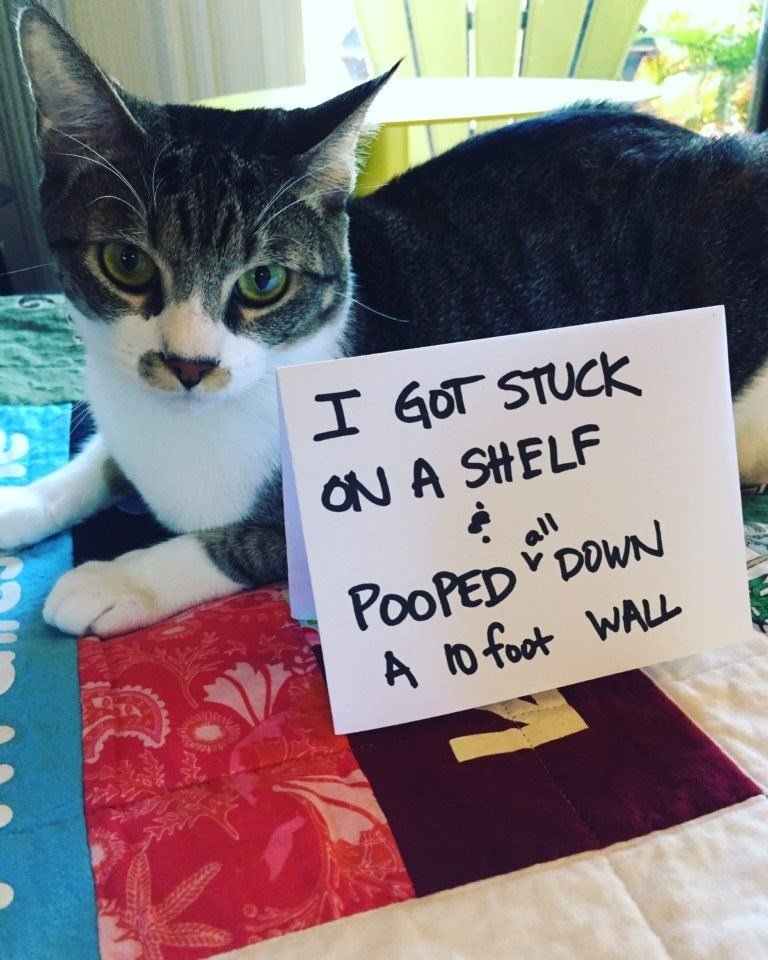 I GOT STUCK
ON A SHELF
&
POOPED all DOWN
A 10 foot WALL